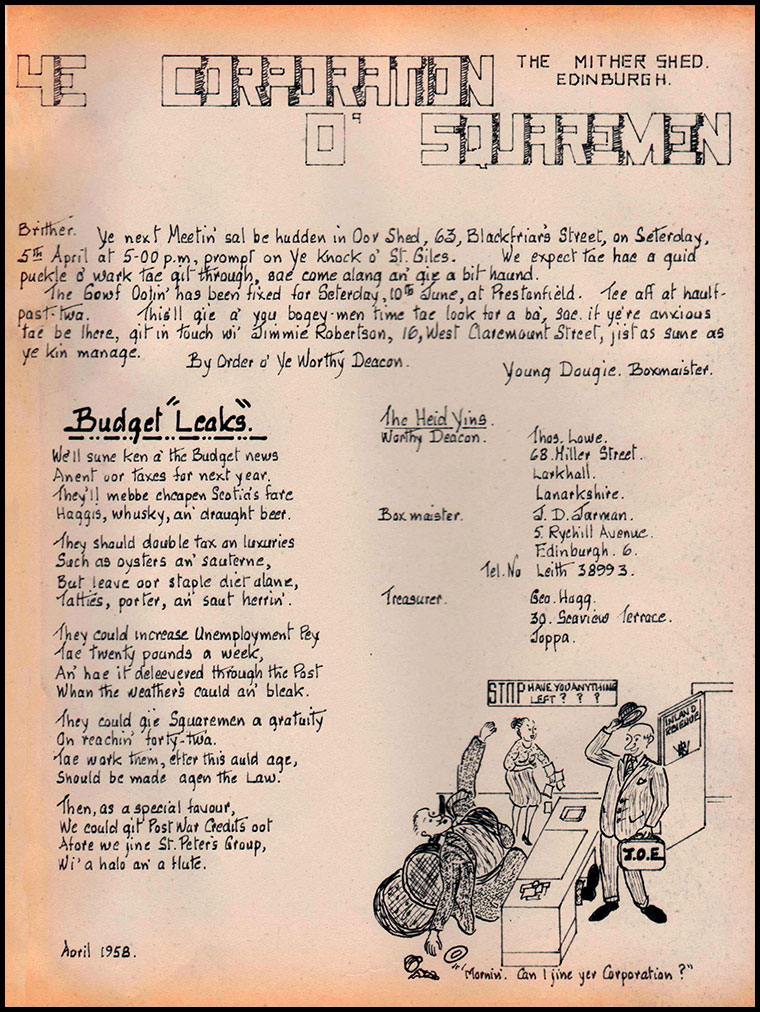 YE CORPORATION
THE MITHER SHED.
EDINBURGH.
O' SQUAREMEN
Brither. Ye next Meetin' sal be hudden in Oor Shed, 63, Blackfriar's Street, on Seterday,
5th April at 5-00 p.m, prompt on Ye Knock o' St. Giles. We expect tae hae a guid
puckle o' wark tae git through, sae come alang an' gie a bit haund.
The Gowf Ootin' has been fixed for Seterday, 10th June, at Prestonfield. Tee aff at haulf-
past-twa. This'll gie a' you bogey-men time tae look for a ba', sae, if ye're anxious
tae be there, git in touch wi' Jimmie Robertson, 16, West Claremount Street, jist as sune as
ye kin manage.
By Order o' Ye Worthy Deacon.
Young Dougie. Boxmaister.
Budget "Leaks".
We'll sune ken a' the Budget news
Anent oor taxes for next year.
They'll mebbe cheapen Scotia's fare
Haggis, whusky, an' draught beer.
They should double tax on luxuries
Such as oysters an' sauterne,
But leave oor staple diet alane,
Tatties, porter, an' saut herrin'.
They could increase Unemployment Pey
Tae twenty pounds a week,
An' hae it deleevered through the Post
Whan the weather's cauld an' bleak.
They could gie Squaremen a gratuity
On reachin' forty-twa.
Tae work them, efter this auld age,
Should be made agen the Law.
Then, as a special favour,
We could git Post War Credits oot
Afore we jine St. Peter's Group,
Wi' a halo an' a flute.
April 1958.
The Heid Yins.
Worthy Deacon. Thos. Lowe.
68. Miller Street.
Larkhall.
Lanarkshire.
Box maister. J. D. Jarman.
5. Ryehill Avenue.
Edinburgh. 6.
Tel. No Leith 38993.
Treasurer. Geo. Hogg.
30. Seaview Terrace.
Joppa.
STOP HAVE YOU ANYTHING
LEFT ? ? ?
INLAND
REVENUE
J.O.E
"Mornin'. Can I jine yer Corporation?"